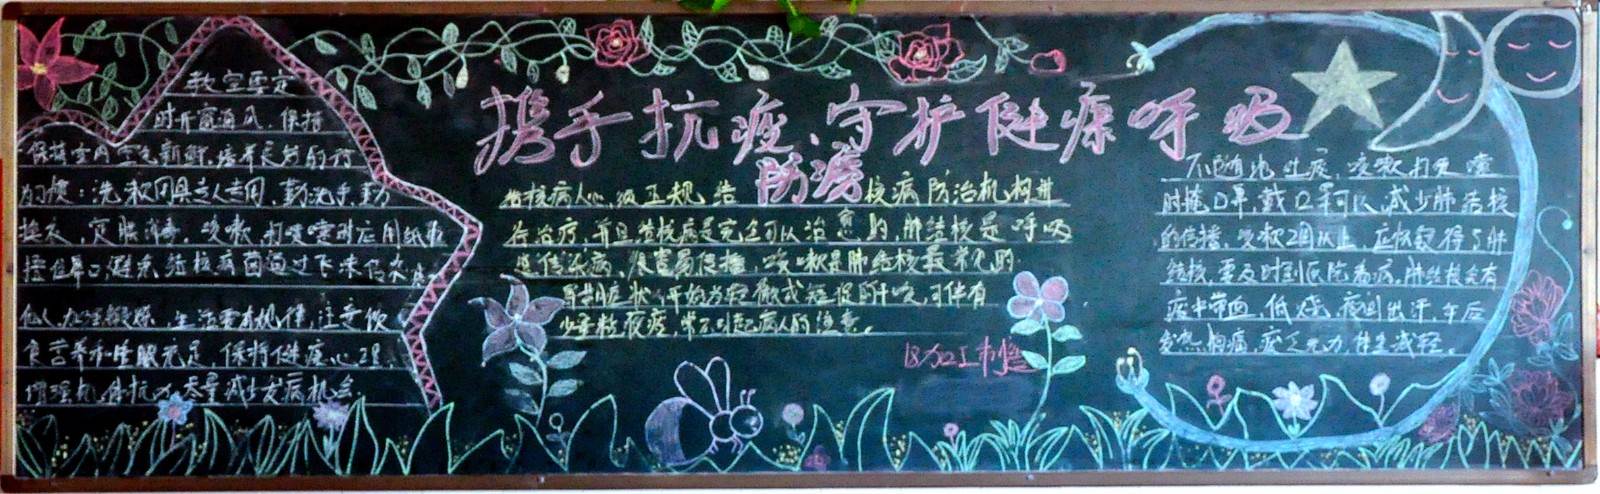 携手抗疫、守护健康呼吸
防痨
教室要定
时开窗通风、保持
保持室内空气新鲜,培养良好的行
为习惯:洗漱用具专人专用,勤洗手、勤
换衣、定服消毒,咳嗽、打喷嚏时应用纸巾
捂住鼻口,避免结核病菌通过下沫传染
他人,加强锻炼,生活要有规律,注意饮
食营养和睡眠充足,保持健康心理,
增强机体抗力,尽量减少发病机会。
结核病人心级正规结 核病防治机构进
行治疗,并且结核病是完全可以治愈的,肺结核是呼吸
道传染病,很容易传播,咳嗽是肺结核最常见的
早期症状,开始为轻微或短促的干咳,可伴有
少量粘夜痰,常不引起病人的注意。
18加工
不随地吐痰,咳嗽打喷嚏
时掩口鼻,戴口罩可以减少肺结核
的传播,咳嗽2周以上,应怀疑得了肺
结核,要及时到医院看病,肺结核会有
痰中带血、低烧、夜间出汗、午后
发热、胸痛、疲乏无力、体重减轻。